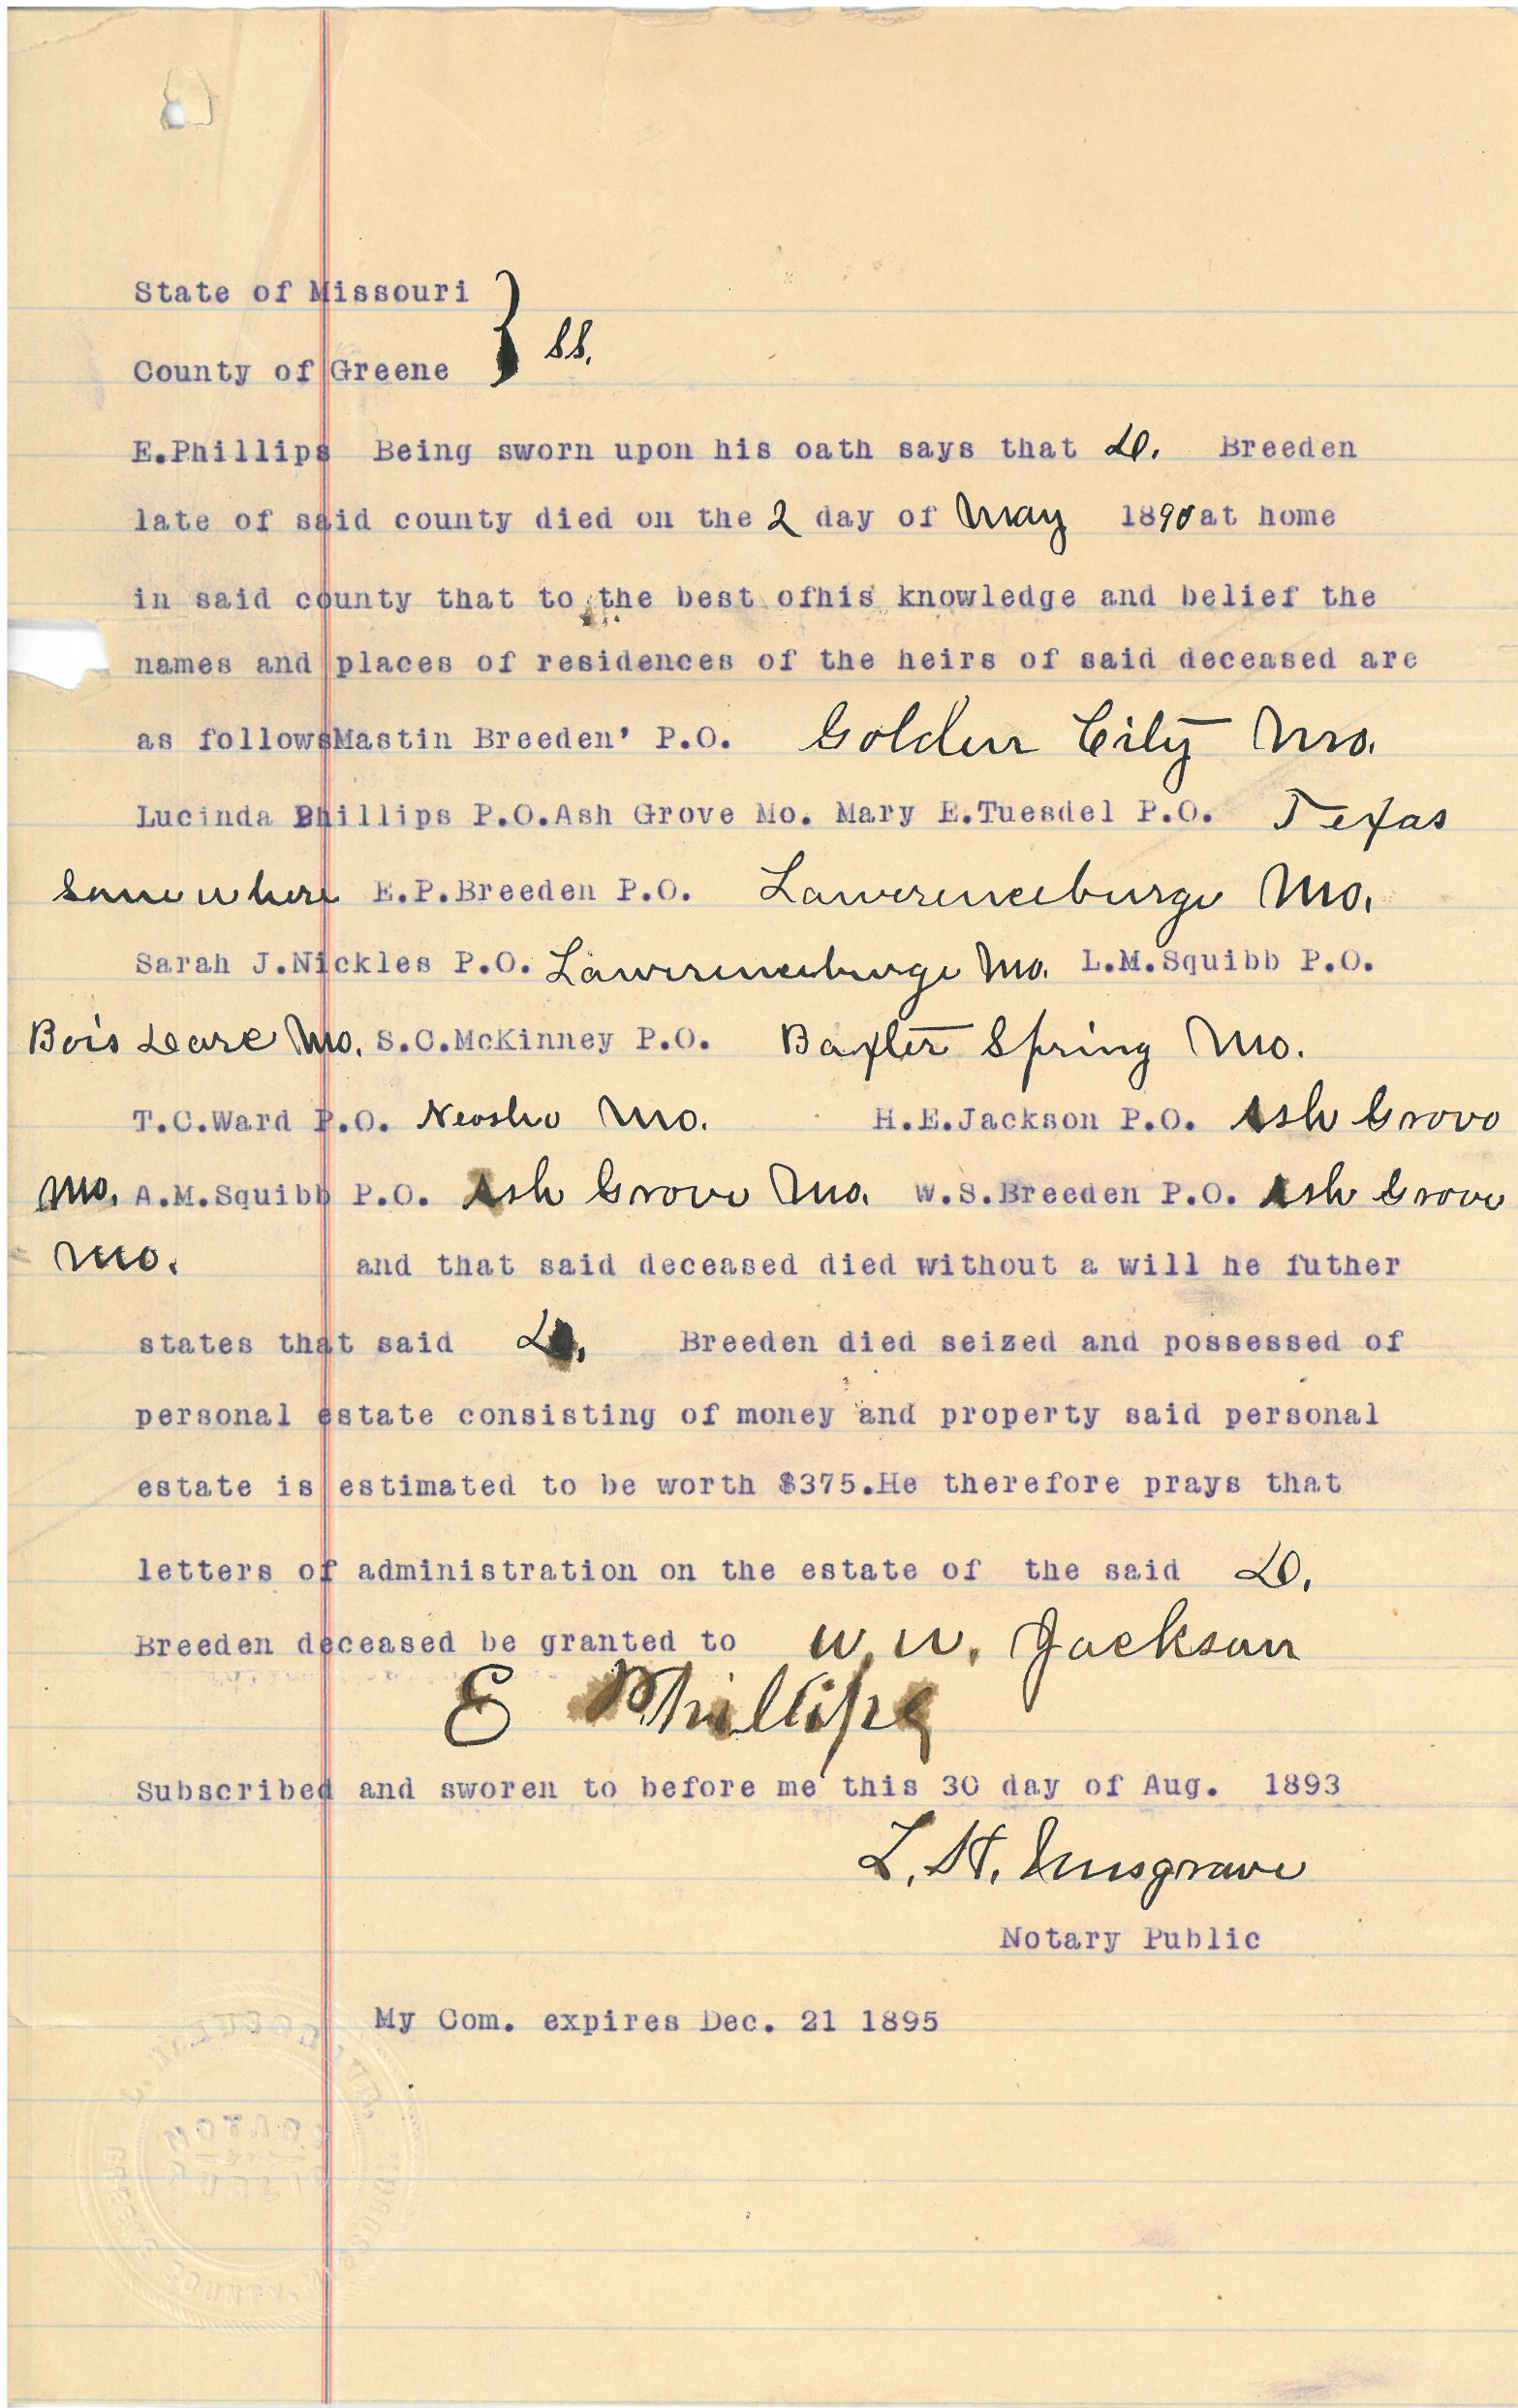 State of Missouri
} SS.
County of Greene
E.Phillips Being sworn upon his oath says that D. Breeden
late of said county died on the 2 day of May 1890 at home
in said county that to the best ofhis knowledge and belief the
names and places of residences of the heirs of said deceased are
as followsMastin Breeden' P.O. Golden City Mo.
Lucinda Phillips P.O.Ash Grove Mo. Mary E.Tuesdel P.O. Texas
Somewhere E.P.Breeden P.O. Lawerenceburge Mo.
Sarah J.Nickles P.O. Lawerenceburge Mo. L.M.Squibb P.O.
Bois Mo. S.C.McKinney P.O. Baxter Spring Mo.
T.C.Ward P.O. Neosho Mo. H.E.Jackson P.O. Ash Grove
Mo. A.M.Squibb P.O. Ash Grove Mo. W.S.Breeden P.O. Ash Grove
Mo. and that said deceased died without a will he futher
states that said Breeden died seized and possessed of
personal estate consisting of money and property said personal
estate is estimated to be worth $375.He therefore prays that
letters of administration on the estate of the said D.
Breeden deceased be granted to W.W. Jackson
E Phillips
Subscribed and sworen to before me this 30 day of Aug. 1893
L. H. Musgrave
Notary Public
My Com. expires Dec. 21 1895